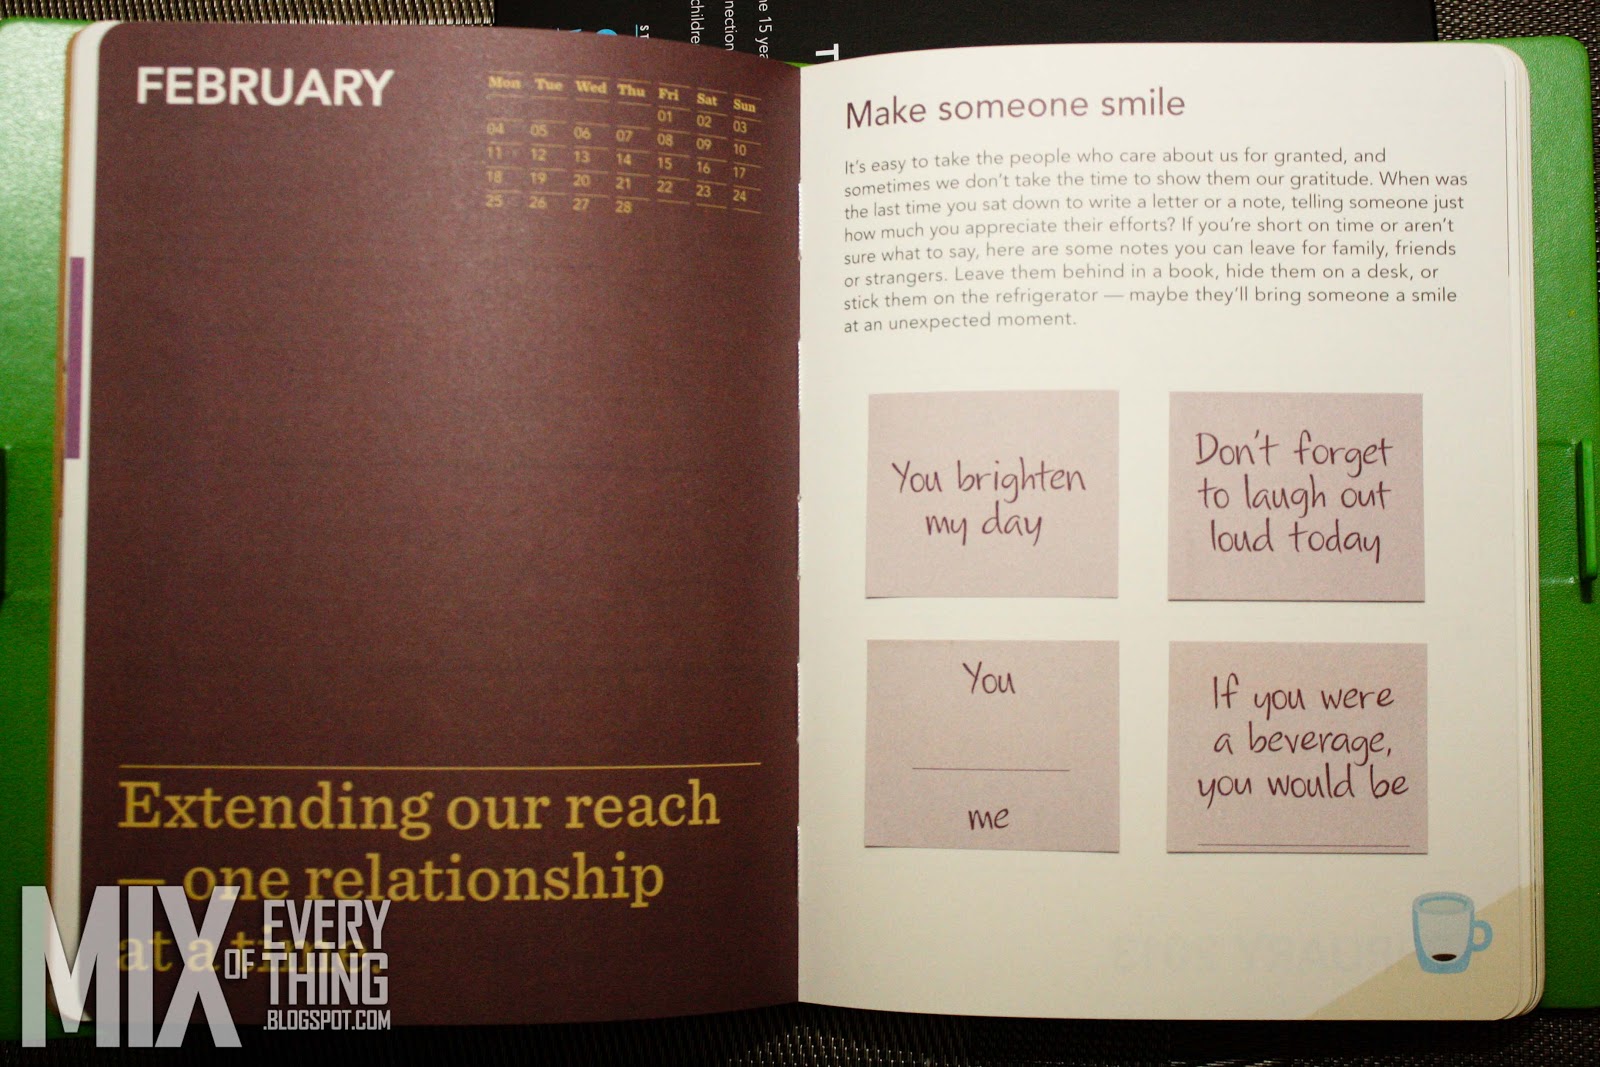 FEBRUARY
Mon Tue Wed Thu Fri Sat Sun
01 02 03
04 05 06 07 08 09 10
11 12 13 14 15 16 17
18 19 20 21 22 23 24
25 26 27 28
Extending our reach
— one relationship
at a time.
Make someone smile
It's easy to take the people who care about us for granted, and
sometimes we don't take the time to show them our gratitude. When was
the last time you sat down to write a letter or a note, telling someone just
how much you appreciate their efforts? If you're short on time or aren't
sure what to say, here are some notes you can leave for family, friends
or strangers. Leave them behind in a book, hide them on a desk, or
stick them on the refrigerator — maybe they'll bring someone a smile
at an unexpected moment.
You brighten
my day
Don't forget
to laugh out
loud today
You
me
If you were
a beverage,
you would be
MIX OF EVERY
THING
.BLOGSPOT.COM